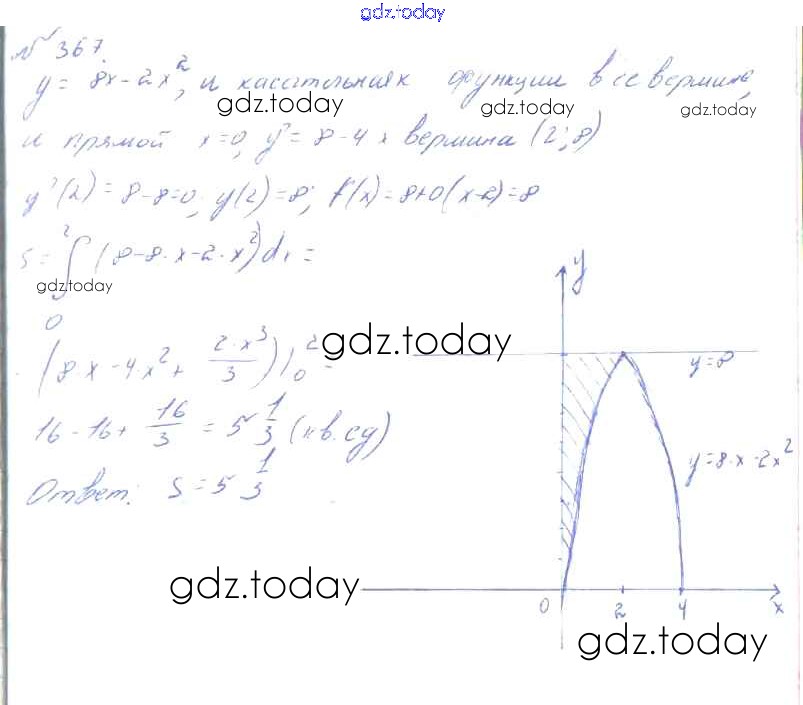 gdz.today
№ 367.
y = 8x - 2x², и касательная к функции в её вершине,
gdz.today gdz.today gdz.today
и прямой x=0, y' = 8 - 4x вершина (2; 8)
y'(2) = 8 - 8 = 0; y(2) = 8; f(x) = 8+0(x-2) = 8
S = ∫₀² (8 - 8·x - 2·x²) dx =
gdz.today
(8·x - 4·x² + 2·x³/3)|₀² =
gdz.today
16 - 16 + 16/3 = 5 1/3 (кв. ед)
Ответ: S = 5 1/3
y
y=8
y=8·x-2x²
gdz.today
0 2 4 x
gdz.today